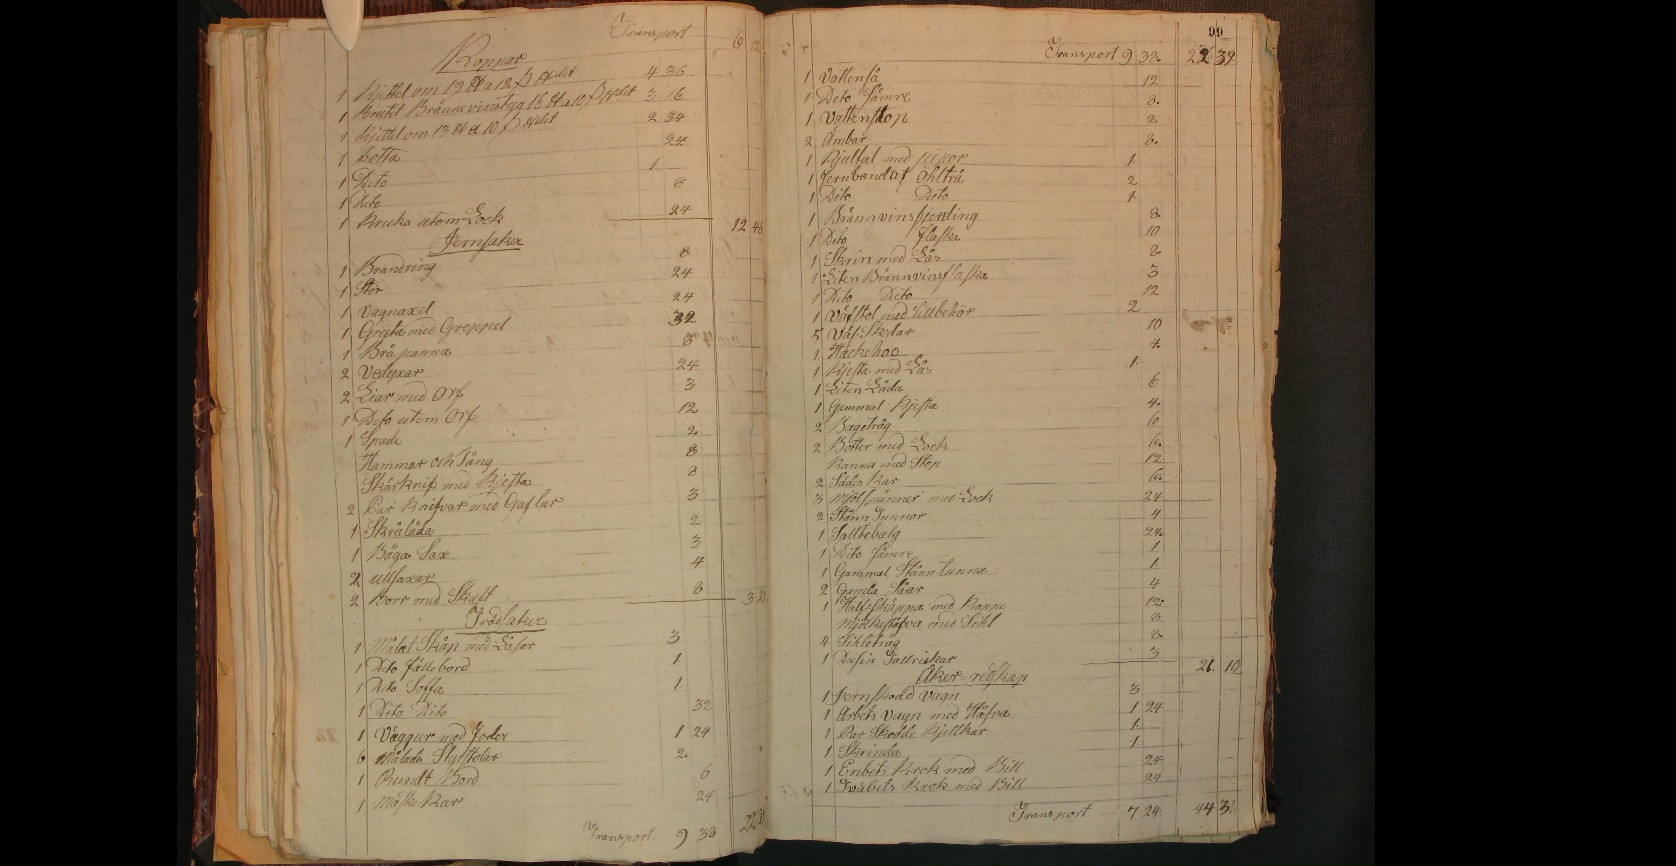 Transport 6 12
Koppar
1 Kjittel om 19 ℔ a 12 β ℔det 4 36
1 Brukit Brännevinstyg 16 ℔ a 10 β ℔det 3 16
1 Kjittel om 13 ℔ a 10 β ℔det 2 34
1 Potta 24
1 Dito 1
1 Dito 8
1 Kruka utom Lock 24 12 46
Jernsaker
1 Brandring 8
1 Stör 24
1 Vagnaxel 24
1 Gryta med Greppel 32
1 Bråpanna 8
2 Vedyxar 24
2 Liar med Orf 3
1 Dito utom Orf 12
1 Spade 2
Hammar och Tång 8
Skärknif med Kjesta 8
2 Par Knifvar med Gaflar 3
1 Skrålåda 2
1 Båga Sax 3
2 Ullsaxar 4
2 Borr med Skaft 8 3
Trädsaker
1 Målat Skåp med Låsar 3
1 Dito fällebord 1
1 Dito Soffa 1
1 Dito Dito 32
1 Väggur med Foder 1 24
6 Målade Stylstolar 2
1 Rundt Bord 6
1 Mäske Kar 24
Transport 9 38 22
99
Transport 9 38 22 39
1 Vattenså 12
1 Dito sämre 8
1 Vattenstop 2
2 Ämbar 8
1 Kjelfat med pipor 1
1 Jernbandat Öhlträ 2
1 Dito Dito 1
1 Brännvinsfjerding 8
1 Dito flaska 10
1 Skrin med Lås 8
1 Liten Brännvinsflaska 3
1 Dito Dito 12
1 Väfstol med tillbehör 2
5 Väf Skedar 10
1 Hackehoo 4
1 Kjesta med Lås 1
1 Liten Låda 6
1 Gammal Kjesta 4
2 Bagetråg 6
2 Bötter med Lock 6
Kanna med Stop 12
2 Sådes Kar 6
3 Mjölspänner med Lock 24
2 Stånn Tunnor 4
1 Saltebalg 24
1 Dito sämre 1
1 Gammal Stånn tunna 1
2 Gamla Såar 4
1 Halfskäppa med Kappe 12
Mjölkestäfva med Sihl 8
4 Sihletråg 8
1 Dusin Tallrickar 3 21 10
Åker-redskap
1 Jernskodd Vagn 3
1 Arbets Vagn med Häfva 1 24
1 Par Skodde Kjellkar 1
1 Skrinda 1
1 Enbets Krok med Bill 24
1 Tvåbets Krok med Bill 24
Transport 7 24 44 3